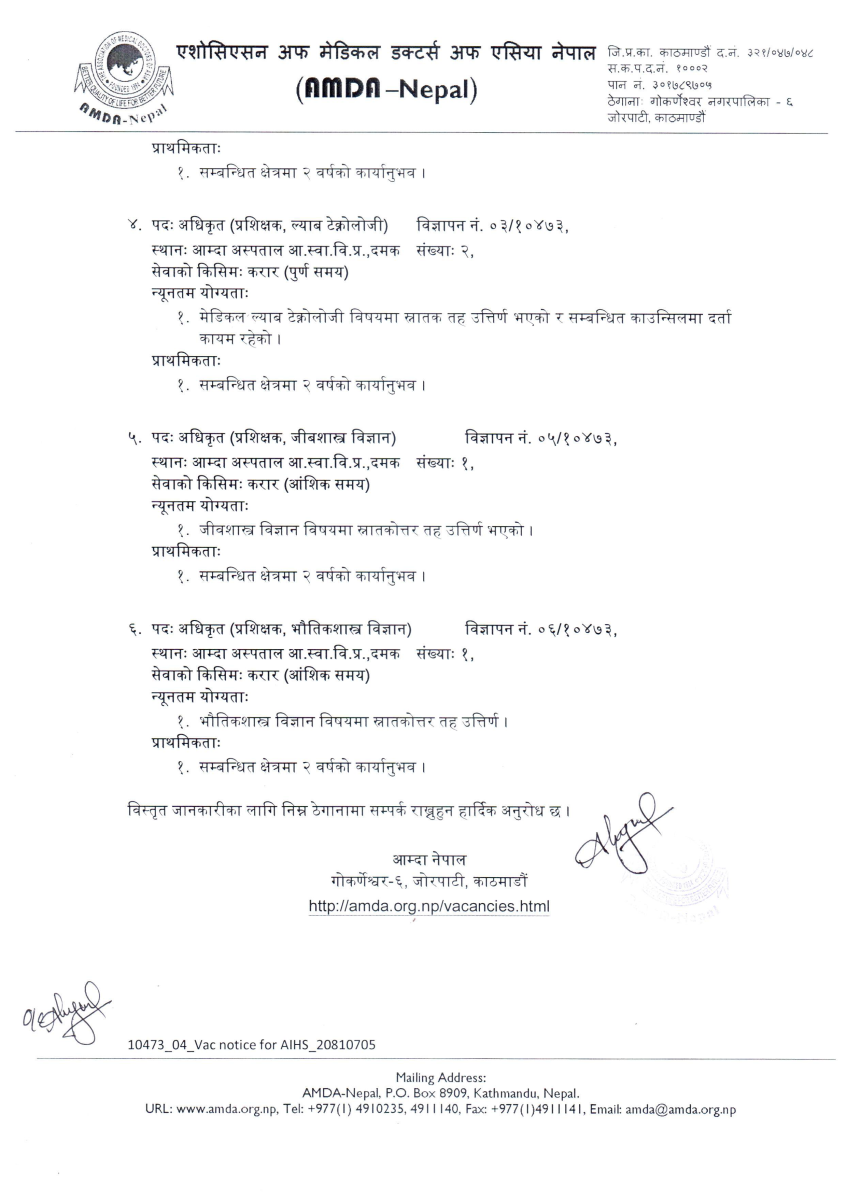 एशोसिएसन अफ मेडिकल डक्टर्स अफ एसिया नेपाल
(AMDA–Nepal)
जि.प्र.का. काठमाण्डौं द.नं. ३२१/०४७/०४८
स.क.प.द.नं. १०००२
पान नं. ३०१७८९७०५
ठेगानाः गोकर्णेश्वर नगरपालिका - ६
जोरपाटी, काठमाण्डौं
THE ASSOCIATION OF MEDICAL DOCTORS OF ASIA
BETTER QUALITY OF LIFE FOR BETTER FUTURE
AMDA-Nepal
प्राथमिकताः
१. सम्बन्धित क्षेत्रमा २ वर्षको कार्यानुभव ।
४. पदः अधिकृत (प्रशिक्षक, ल्याब टेक्नोलोजी) विज्ञापन नं. ०३/१०४७३,
स्थानः आम्दा अस्पताल आ.स्वा.वि.प्र.,दमक संख्याः २,
सेवाको किसिमः करार (पुर्ण समय)
न्यूनतम योग्यताः
१. मेडिकल ल्याब टेक्नोलोजी विषयमा स्नातक तह उत्तिर्ण भएको र सम्बन्धित काउन्सिलमा दर्ता
कायम रहेको ।
प्राथमिकताः
१. सम्बन्धित क्षेत्रमा २ वर्षको कार्यानुभव ।
५. पदः अधिकृत (प्रशिक्षक, जीबशास्त्र विज्ञान) विज्ञापन नं. ०५/१०४७३,
स्थानः आम्दा अस्पताल आ.स्वा.वि.प्र.,दमक संख्याः १,
सेवाको किसिमः करार (आंशिक समय)
न्यूनतम योग्यताः
१. जीवशास्त्र विज्ञान विषयमा स्नातकोत्तर तह उत्तिर्ण भएको ।
प्राथमिकताः
१. सम्बन्धित क्षेत्रमा २ वर्षको कार्यानुभव ।
६. पदः अधिकृत (प्रशिक्षक, भौतिकशास्त्र विज्ञान) विज्ञापन नं. ०६/१०४७३,
स्थानः आम्दा अस्पताल आ.स्वा.वि.प्र.,दमक संख्याः १,
सेवाको किसिमः करार (आंशिक समय)
न्यूनतम योग्यताः
१. भौतिकशास्त्र विज्ञान विषयमा स्नातकोत्तर तह उत्तिर्ण ।
प्राथमिकताः
१. सम्बन्धित क्षेत्रमा २ वर्षको कार्यानुभव ।
विस्तृत जानकारीका लागि निम्न ठेगानामा सम्पर्क राख्नुहुन हार्दिक अनुरोध छ ।
आम्दा नेपाल
गोकर्णेश्वर-६, जोरपाटी, काठमाडौं
http://amda.org.np/vacancies.html
10473_04_Vac notice for AIHS_20810705
Mailing Address:
AMDA-Nepal, P.O. Box 8909, Kathmandu, Nepal.
URL: www.amda.org.np, Tel: +977(1) 4910235, 4911140, Fax: +977(1)4911141, Email: amda@amda.org.np